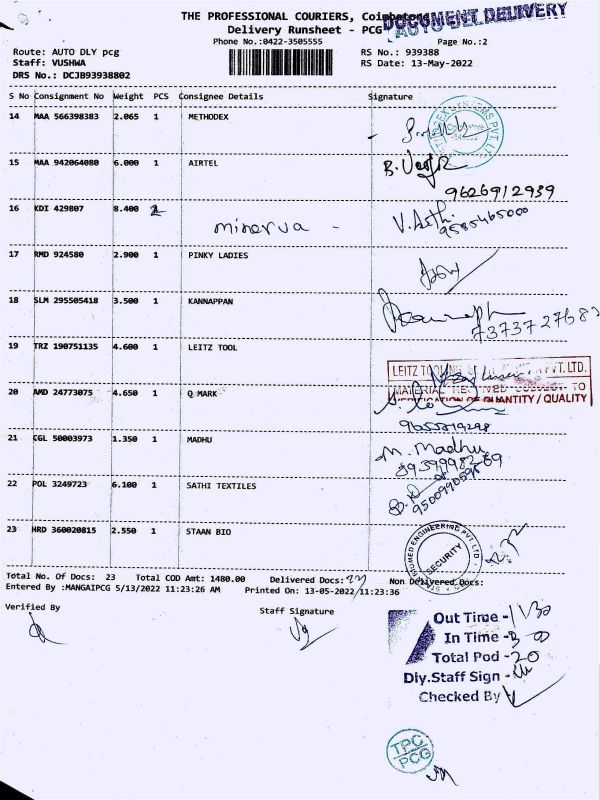 THE PROFESSIONAL COURIERS, Coimbatore
DOCUMENT DELIVERY
AUTO DELIVERY
Delivery Runsheet - PCG
Phone No.:0422-3505555
Page No.:2
Route: AUTO DLY pcg
RS No.: 939388
Staff: VUSHWA
RS Date: 13-May-2022
DRS No.: DCJB93938802
S No Consignment No Weight PCS Consignee Details Signature
14 MAA 566398383 2.065 1 METHODEX
15 MAA 942064080 6.000 1 AIRTEL
9626912939
16 KDI 429807 8.400 minerva -
9585465000
17 RMD 924580 2.900 1 PINKY LADIES
18 SLM 295505418 3.500 1 KANNAPPAN
19 TRZ 190751135 4.600 1 LEITZ TOOL
LEITZ TOOLING PVT. LTD.
MATERIAL RECEIVED SUBJECT TO
VERIFICATION OF QUANTITY / QUALITY
20 AMD 24773075 4.650 1 Q MARK
21 CGL 50003973 1.350 1 MADHU
M. Madhu
22 POL 3249723 6.100 1 SATHI TEXTILES
9500990595
23 HRD 360020815 2.550 1 STAAN BIO
STAAN BIOMED ENGINEERING PVT. LTD.
SECURITY
Total No. Of Docs: 23 Total COD Amt: 1480.00 Delivered Docs: Non Delivered Docs:
Entered By :MANGAIPCG 5/13/2022 11:23:26 AM Printed On: 13-05-2022/11:23:36
Verified By
Staff Signature
Out Time - 11/30
In Time - 3 00
Total Pod - 20
Dly.Staff Sign -
Checked By
TPC
PCG